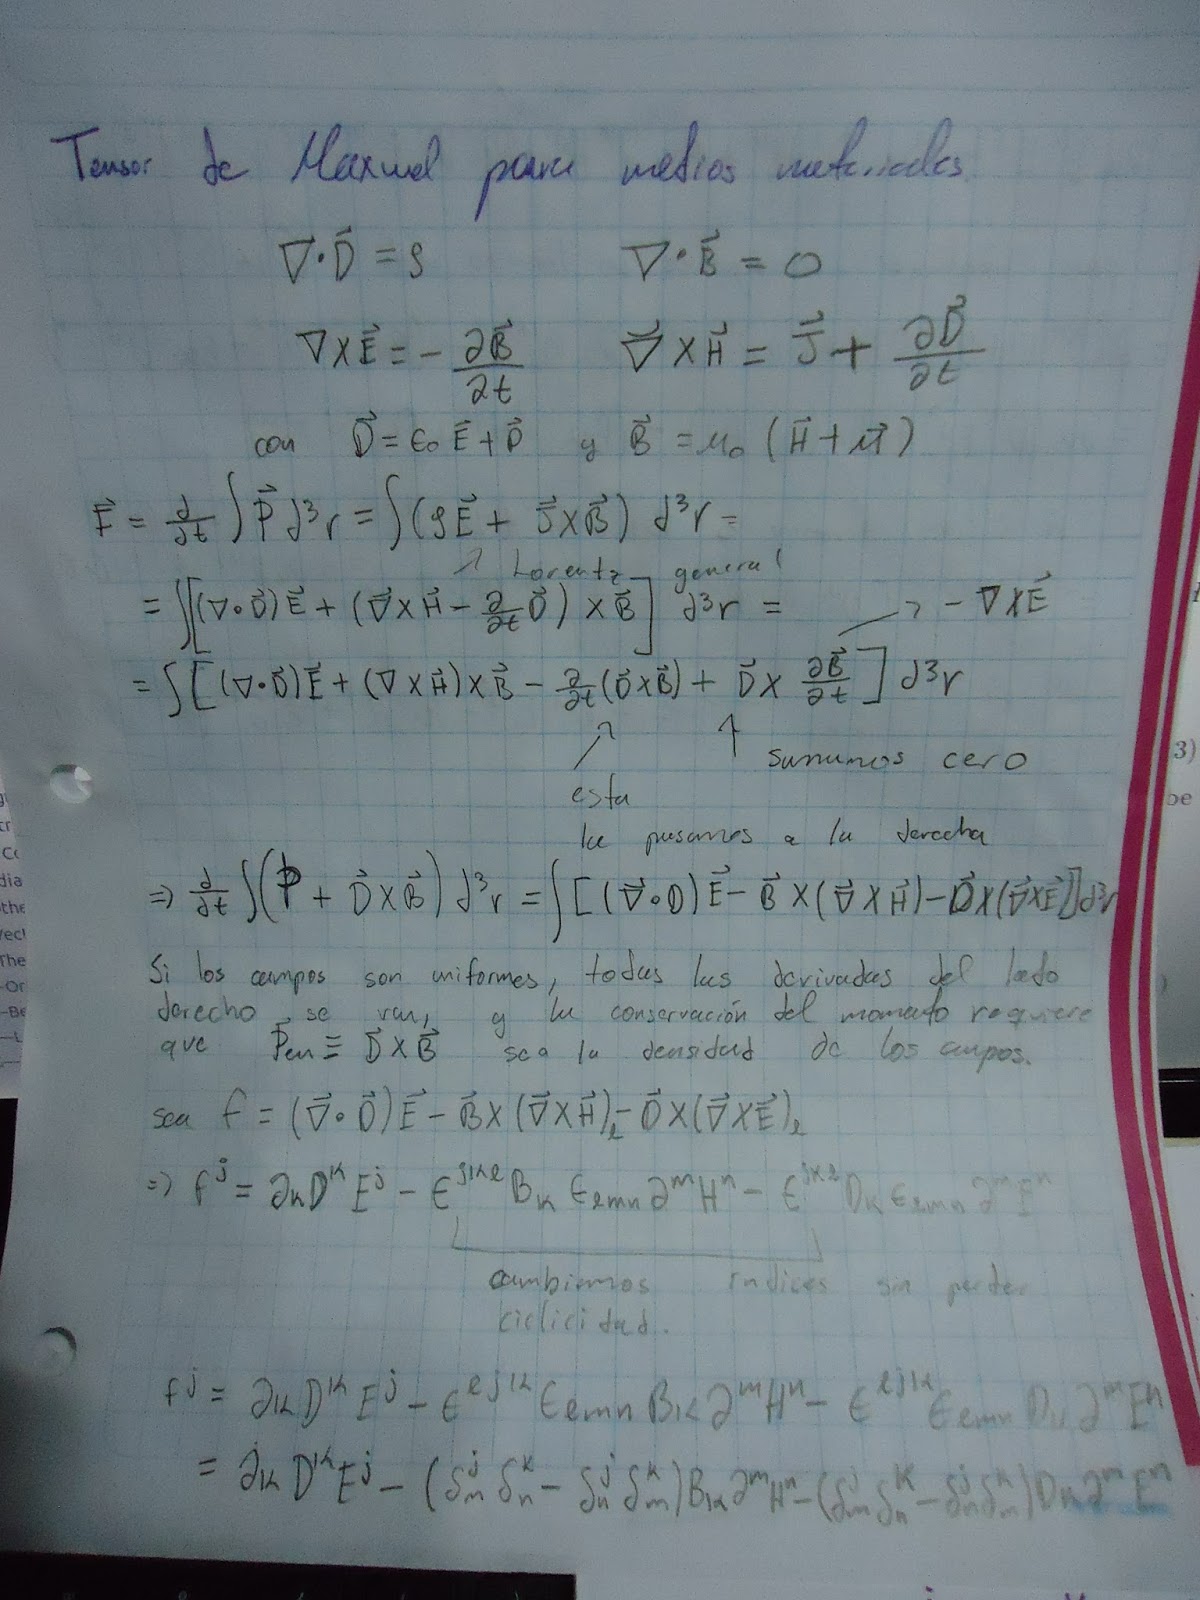 Tensor de Maxwel para medios materiales.
∇·D⃗ = ρ    ∇·B⃗ = 0
∇×E⃗ = - ∂B⃗/∂t    ∇⃗×H⃗ = J⃗ + ∂D⃗/∂t
con D⃗ = ε₀ E⃗ + D⃗ y B⃗ = μ₀ (H⃗ + M⃗)
F⃗ = d/dt ∫ P⃗ d³r = ∫(ρE⃗ + J⃗×B⃗) d³r =
Lorentz general
= ∫[(∇·D⃗)E⃗ + (∇⃗×H⃗ - ∂/∂t D⃗) × B⃗] d³r =    → - ∇×E⃗
= ∫[(∇·D⃗)E⃗ + (∇×H⃗)×B⃗ - ∂/∂t(D⃗×B⃗) + D⃗× ∂B⃗/∂t] d³r
sumamos cero
esta
la pasamos a la derecha
⇒ d/dt ∫(P + D⃗×B⃗) d³r = ∫[(∇⃗·D)E⃗ - B⃗×(∇⃗×H⃗) - D⃗×(∇⃗×E⃗)]d³r
Si los campos son uniformes, todas las derivadas del lado
derecho se van, y la conservación del momento requiere
que P⃗em ≡ D⃗×B⃗ sea la densidad de los campos.
sea f = (∇⃗·D⃗)E⃗ - B⃗×(∇⃗×H⃗)ₗ - D⃗×(∇⃗×E⃗)ₗ
⇒ fʲ = ∂ₖDᵏEʲ - ϵʲᵏˡBₖϵₗₘₙ∂ᵐHⁿ - ϵʲᵏˡDₖϵₗₘₙ∂ᵐEⁿ
cambiamos indices sin perder
ciclicidad.
fʲ = ∂ₖDᵏEʲ - ϵˡʲᵏϵₗₘₙBₖ∂ᵐHⁿ - ϵˡʲᵏϵₗₘₙDₖ∂ᵐEⁿ
= ∂ₖDᵏEʲ - (δʲₘδᵏₙ - δʲₙδᵏₘ)Bₖ∂ᵐHⁿ - (δʲₘδᵏₙ - δʲₙδᵏₘ)Dₖ∂ᵐEⁿ